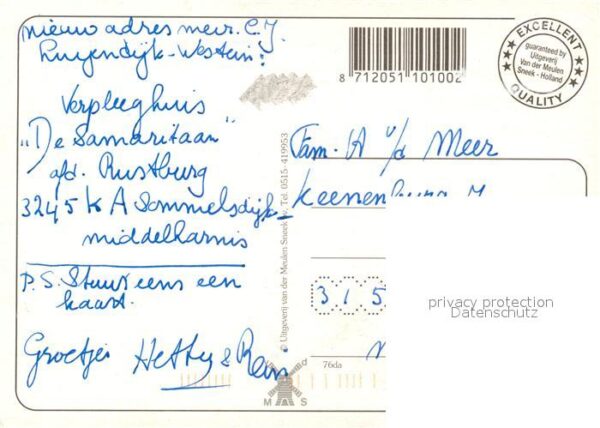 nieuw adres mevr. C.J.
Luyendijk-Westein:
Verpleeghuis
"De Samaritaan"
afd. Rustburg
3245 KA Sommelsdijk-
middelharnis
P.S. Stuur eens een
kaart.
Groetjes Hetty & Rein
8 712051 101002
EXCELLENT
guaranteed by
Uitgeverij
Van der Meulen
Sneek - Holland
QUALITY
Fam. A v/d Meer
© Uitgeverij van der Meulen Sneek Tel. 0515-419953
3 1 5
76da
M S
privacy protection
Datenschutz